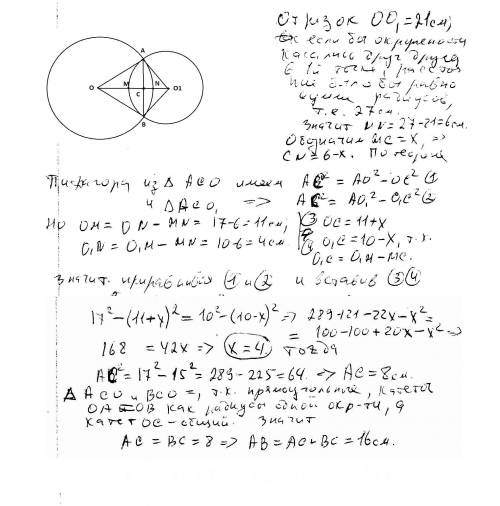 A
O
M
C
N
O1
B
Отрезок OO₁ = 21см;
если бы окружности
касались друг друга
в 1й точке,
было бы равно
сумме радиусов,
т.е. 27см.
Значит MN = 27-21=6см.
Обозначим MC = X, =>
CN = 6-X. По теореме
Пифагора из Δ ACO имеем AC² = AO² - OC² ①
и Δ ACO₁ => AC² = AO₁² - O₁C² ②
Но OM = ON - MN = 17-6 = 11см; ③ OC = 11+X
O₁N = O₁M - MN = 10-6 = 4см. ④ O₁C = 10-X, т.к.
O₁C = O₁M - MC.
Значит приравнивая ① и ② и вставив ③④
17² - (11+X)² = 10² - (10-X)² => 289-121-22X-X² =
= 100-100+20X-X² =>
168 = 42X => X = 4 тогда
AC² = 17² - 15² = 289 - 225 = 64. => AC = 8см.
Δ ACO и BCO =, т.к. прямоугольные, катеты
OA = OB как радиусы одной окр-ти, а
катет OC - общий. Значит
AC = BC = 8 => AB = AC+BC = 16см.